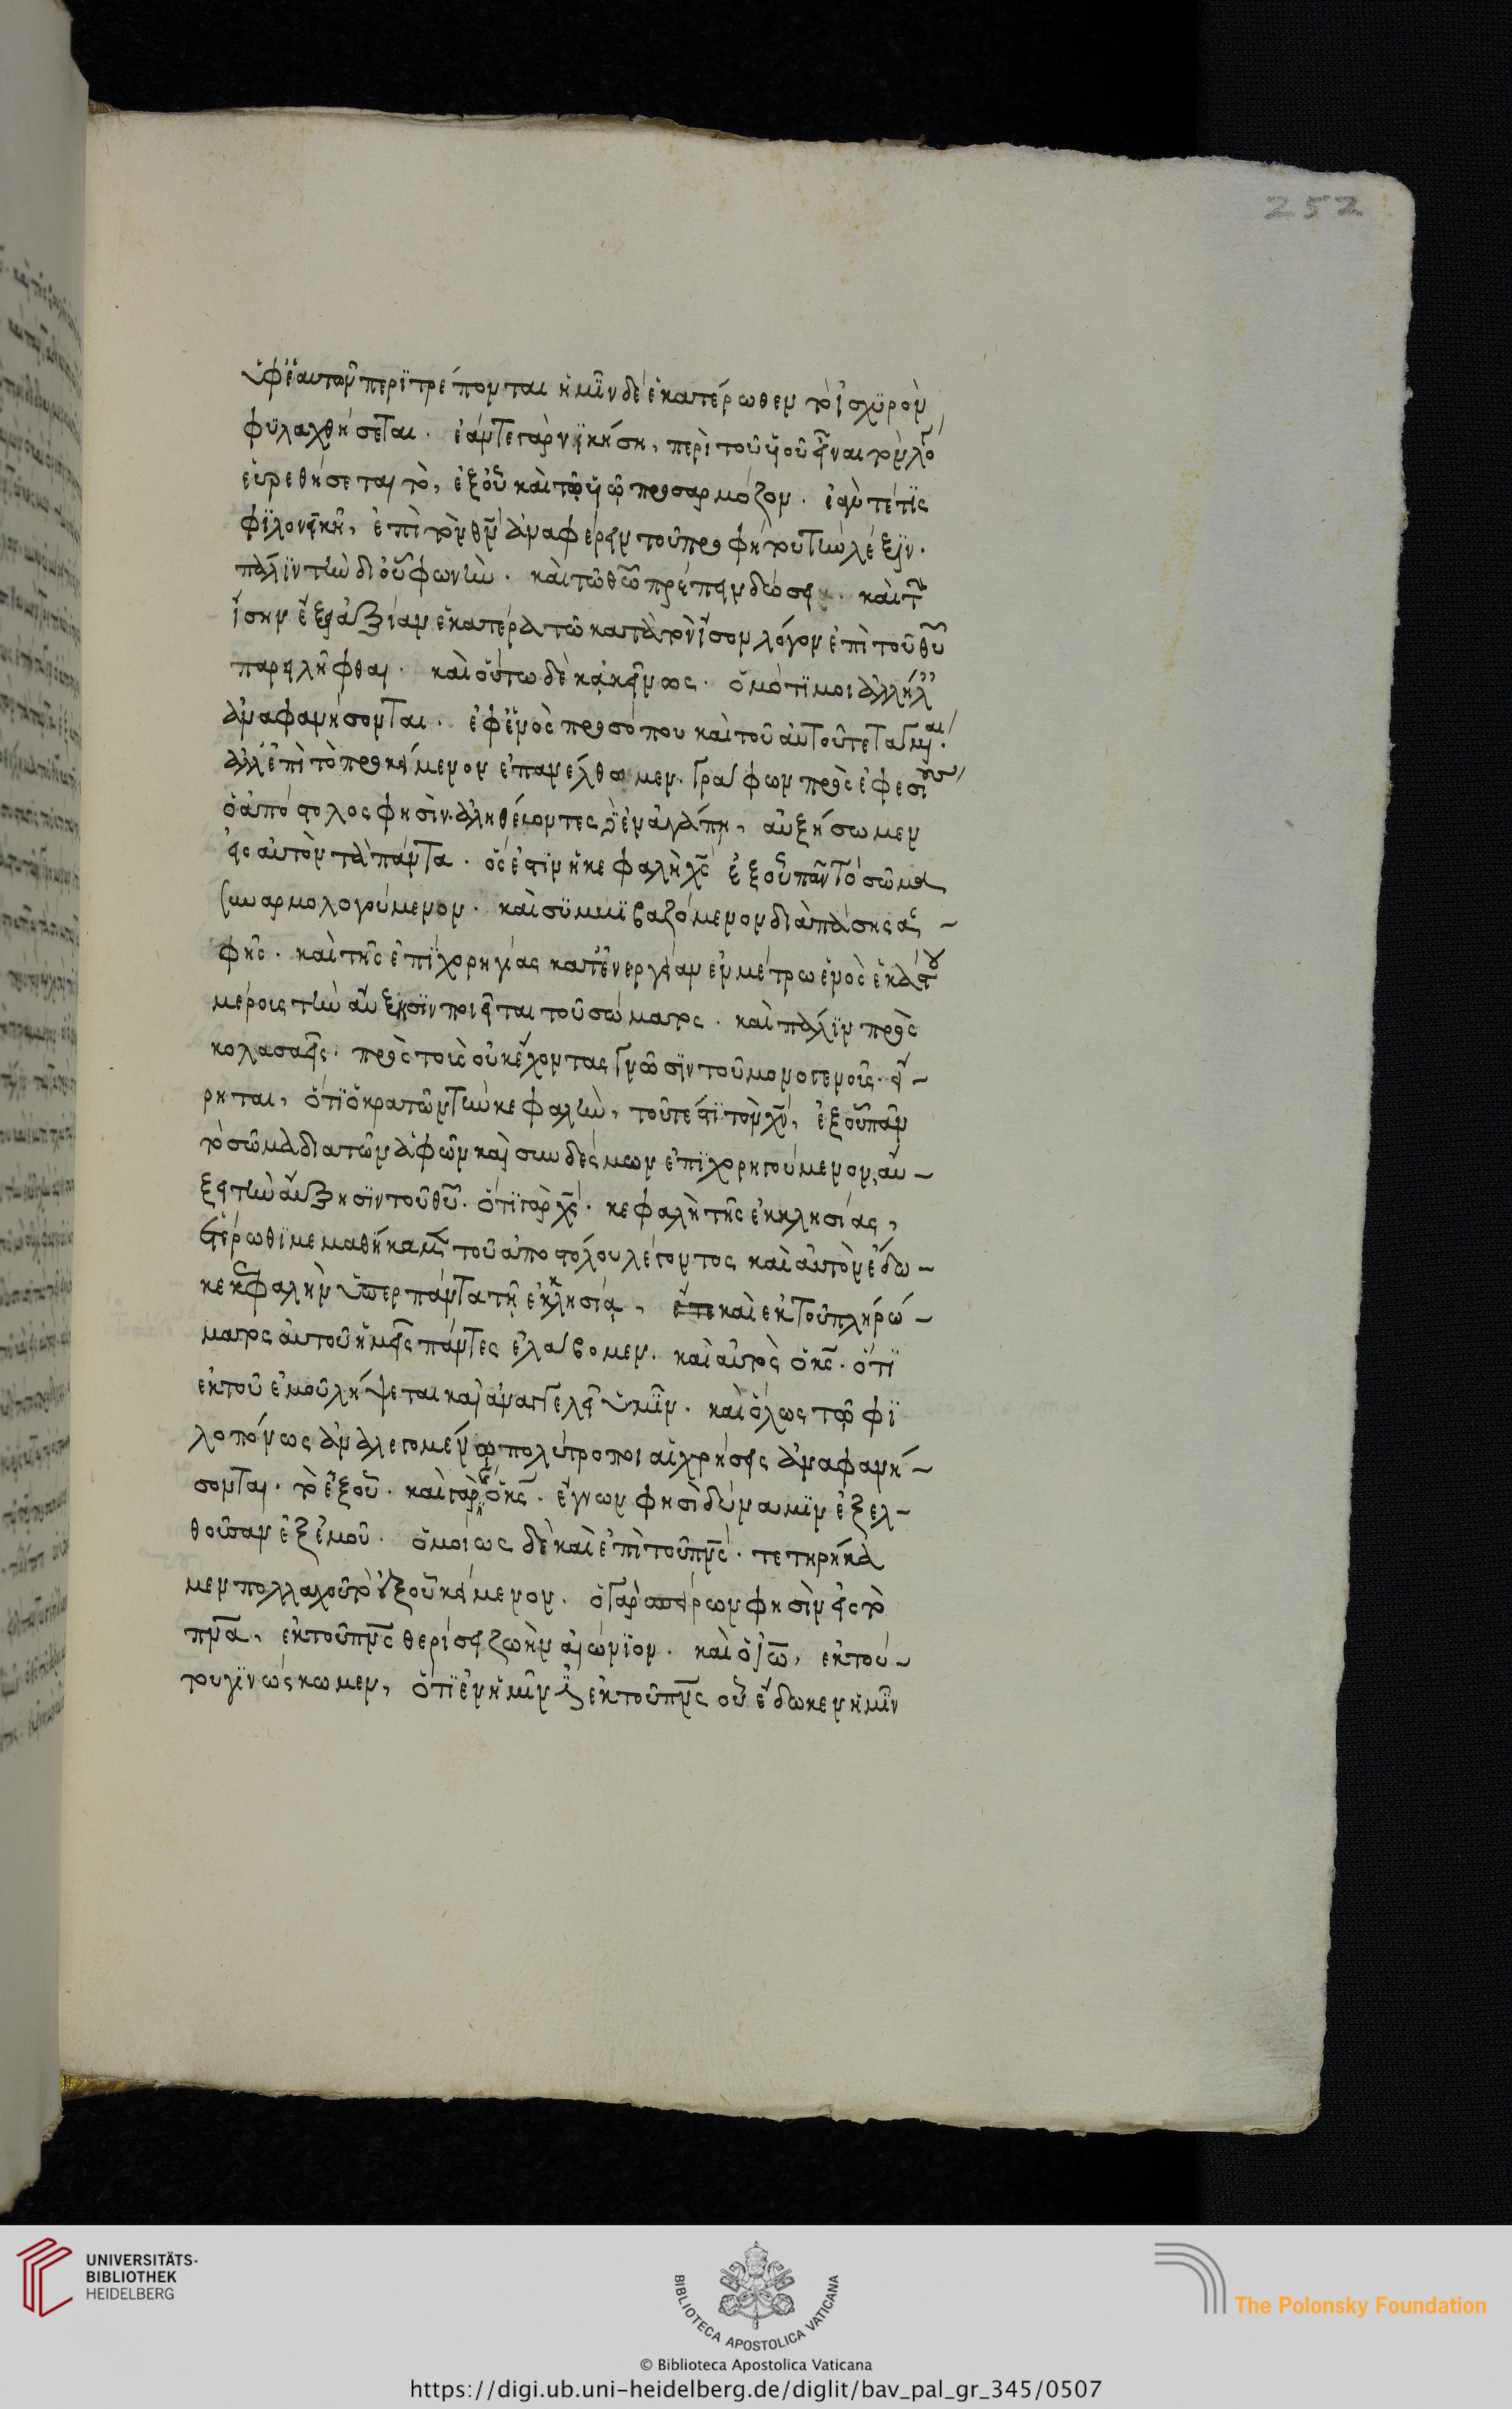 252
ὑφ' ἑαυτῶν περιτρέπονται ἡμῖν δὲ ἑκατέρωθεν τὸ ἰσχυρὸν
φυλαχθήσεται. ἐάν τε γὰρ νικήση, περὶ τοῦ υἱοῦ εἶναι τὸν λό
εὑρεθήσεται τὸ, ἐξ οὗ καὶ τῷ υἱῷ προσαρμόζον. ἐάν τέ τις
φιλονεικῆ, ἐπὶ τὸν θν ἀναφέρειν τοῦ προφήτου τὴν λέξιν.
πάλιν τὴν δι' οὗ φωνὴν. καὶ τῶ θω πρέπειν δώσει. καὶ τ
ἴσην ἕξει ἀξίαν ἑκατέρα τῶ κατὰ τὸν ἴσον λόγον ἐπὶ τοῦ θυ
παρειλῆφθαι. καὶ οὕτω δὲ κἀκείνως. ὁμότιμοι ἀλλήλ
ἀναφανήσονται. ἐφ' ἑνὸς προσόπου καὶ τοῦ αὐτοῦ τεταγμέναι.
ἀλλ' ἐπὶ τὸ προκείμενον ἐπανέλθωμεν. γράφων πρὸς ἐφεσίους
ὁ ἀπόστολος φησὶν. ἀληθεύοντες δὲ ἐν ἀγάπη, αὐξήσωμεν
εἰς αὐτὸν τὰ πάντα. ὅς ἐστιν ἡ κεφαλὴ χς ἐξ οὗ πᾶν τὸ σῶμα
συναρμολογούμενον. καὶ συμμιβαζόμενον διὰ πάσης ἁ-
φῆς. καὶ τῆς ἐπιχορηγίας κατ' ἐνεργείαν ἐν μέτρω ἑνὸς ἑκάστου
μέροις τὴν αὔξησιν ποιεῖται τοῦ σώματος. καὶ πάλιν πρὸς
κολασαεῖς. πρὸς τοὶς οὐκ ἔχοντας γνῶσιν τοῦ μονογενοῖς. εἴ-
ρηται, ὅτι ὁ κρατῶν τὴν κεφαλὴν, τοῦτέστι τὸν χν, ἐξ οὗ πᾶν
τὸ σῶμα διὰ τῶν ἁφῶν καὶ συνδέσμων ἐπιχορηγούμενον, αὔ-
ξει τὴν αὔξησιν τοῦ θυ. ὅτι γὰρ χς. κεφαλὴ τῆς ἐκκλησίας,
ἑτέρωθι μεμαθήκαμεν τοῦ ἀποστόλου λέγοντος καὶ αὐτὸν ἔδω-
κε κεφαλὴν ὑπερ πάντα τῆ ἐκκλησίᾳ, ἔτε καὶ ἐκ τοῦ πληρώ-
ματος αὐτοῦ ἡμεῖς πάντες ἐλάβομεν. καὶ αὐτὸς ὁ κς. ὅτι
ἐκ τοῦ ἐμοῦ λήψεται καὶ ἀναγγελεῖ ὑμῖν. καὶ ὅλως τῷ φι
λοπόνως ἀναλεγομένῳ πολύτροποι αἱ χρήσεις ἀναφανή-
σονται. τὸ ἐξ οὗ. καὶ γὰρ ὁ κς. ἔγνων φησὶ δύναμιν ἐξελ-
θοῦσαν ἐξ ἐμοῦ. ὁμοίως δὲ καὶ ἐπὶ τοῦ πνς. τετηρήκα
μεν πολλαχοῦ τὸ ἐξ οὗ κείμενον. ὁ γὰρ σπείρων φησὶν εἰς τὸ
πνα, ἐκ τοῦ πνς θερίσει ζωὴν αἰώνιον. καὶ ὁ ἰω, ἐκ τού-
του γινώσκωμεν, ὅτι ἐν ἡμῖν ἐστιν ἐκ τοῦ πνς οὗ ἔδωκεν ἡμῖν
UNIVERSITÄTS-
BIBLIOTHEK
HEIDELBERG
BIBLIOTECA APOSTOLICA VATICANA
The Polonsky Foundation
© Biblioteca Apostolica Vaticana
https://digi.ub.uni-heidelberg.de/diglit/bav_pal_gr_345/0507